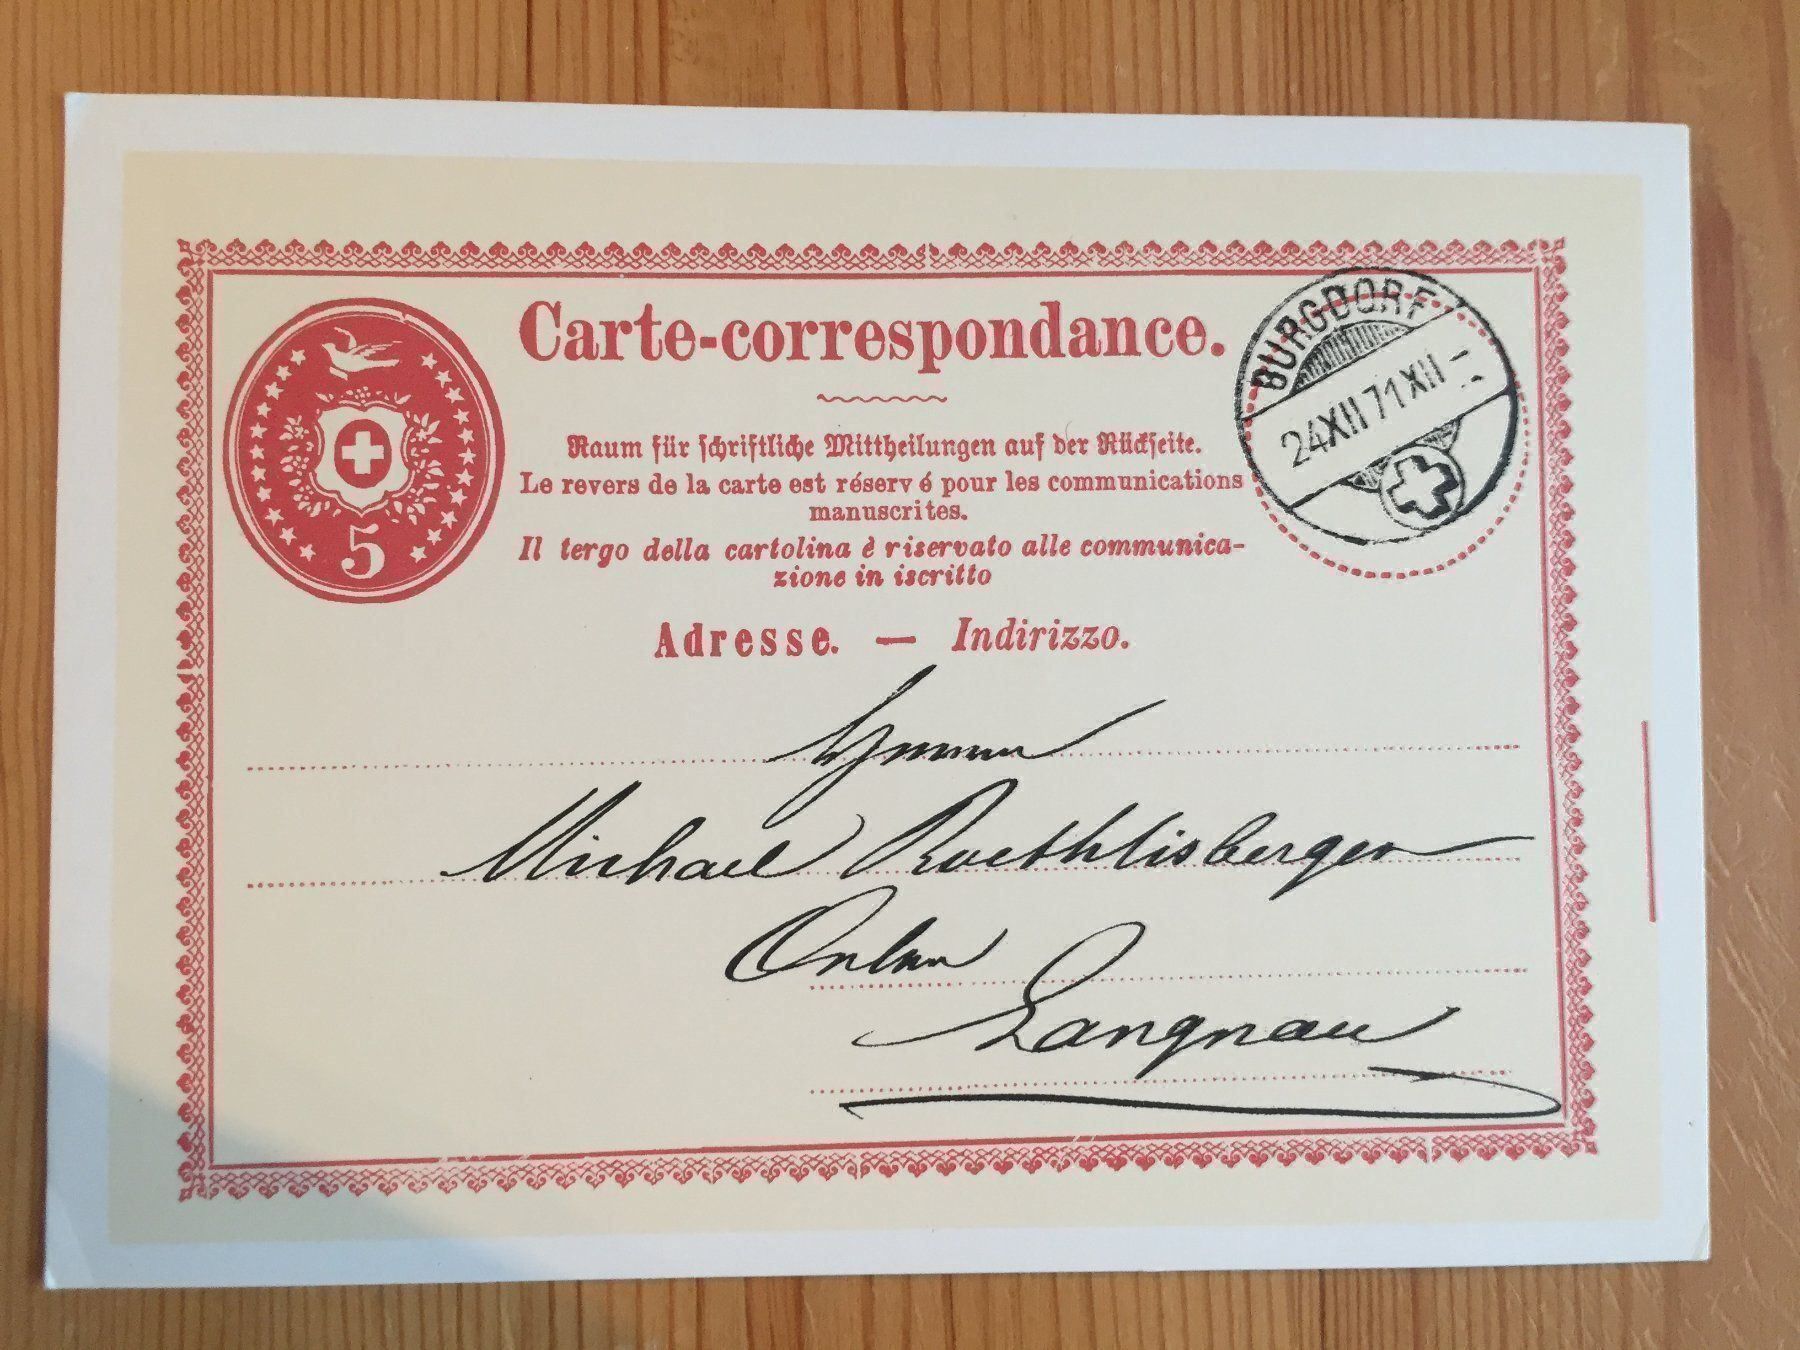 Carte-correspondance.
5
BURGDORF
24XII71XII-
Raum für schriftliche Mittheilungen auf der Rückseite.
Le revers de la carte est réservé pour les communications
manuscrites.
Il tergo della cartolina è riservato alle communica-
zione in iscritto
Adresse. — Indirizzo.
Michael Roethlisberger
Langnau